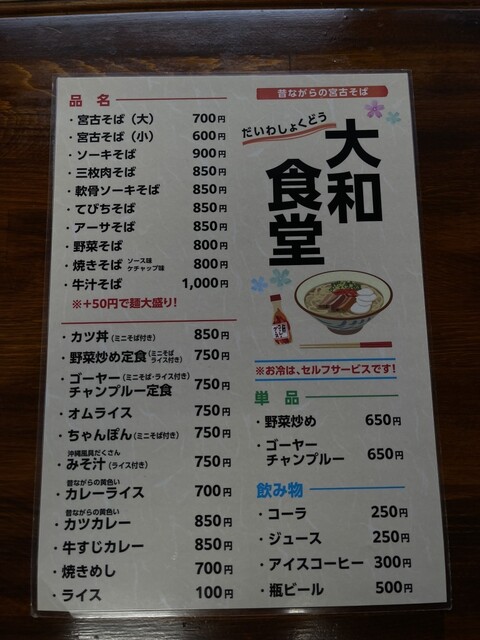 品 名
・宮古そば（大） 700円
・宮古そば（小） 600円
・ソーキそば 900円
・三枚肉そば 850円
・軟骨ソーキそば 850円
・てびちそば 850円
・アーサそば 850円
・野菜そば 800円
・焼きそば ソース味 ケチャップ味 800円
・牛汁そば 1,000円
※＋50円で麺大盛り!
・カツ丼（ミニそば付き） 850円
・野菜炒め定食（ミニそば ライス付き） 750円
・ゴーヤー（ミニそば・ライス付き）
チャンプルー定食 750円
・オムライス 750円
・ちゃんぽん（ミニそば付き） 750円
沖縄風具だくさん
・みそ汁（ライス付き） 750円
昔ながらの黄色い
・カレーライス 700円
昔ながらの黄色い
・カツカレー 850円
・牛すじカレー 850円
・焼きめし 700円
・ライス 100円
昔ながらの宮古そば
だいわしょくどう
大和
食堂
※お冷は、セルフサービスです!
単 品
・野菜炒め 650円
・ゴーヤー
チャンプルー 650円
飲み物
・コーラ 250円
・ジュース 250円
・アイスコーヒー 300円
・瓶ビール 500円